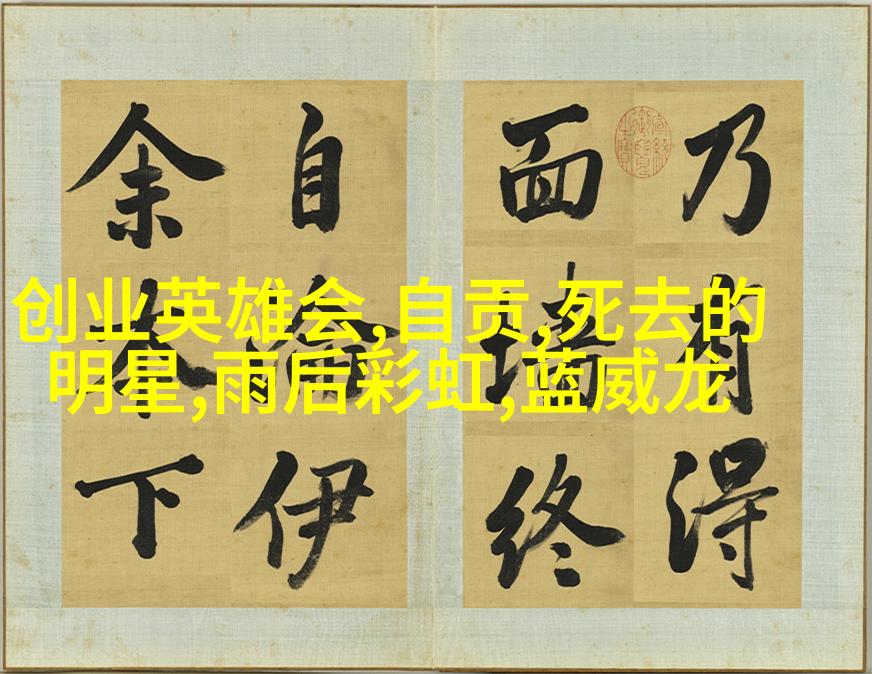 创业英雄会,自贡,死去的
明星,雨后彩虹,蓝威龙
乃有得
面墙终
自伊
余本下